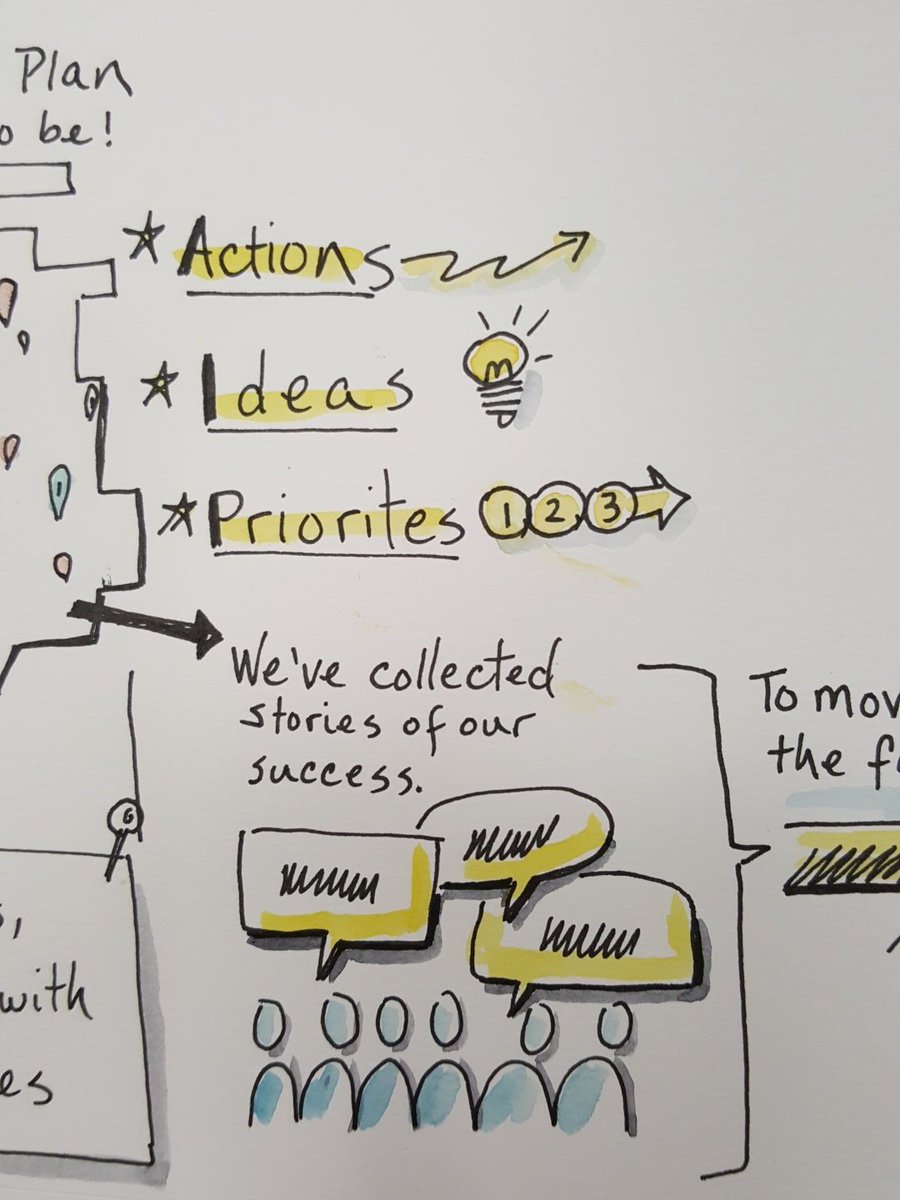 Plan
o be!
Actions
Ideas
Priorites
1 2 3
We've collected
stories of our
success.
To mov
the f
s,
with
es